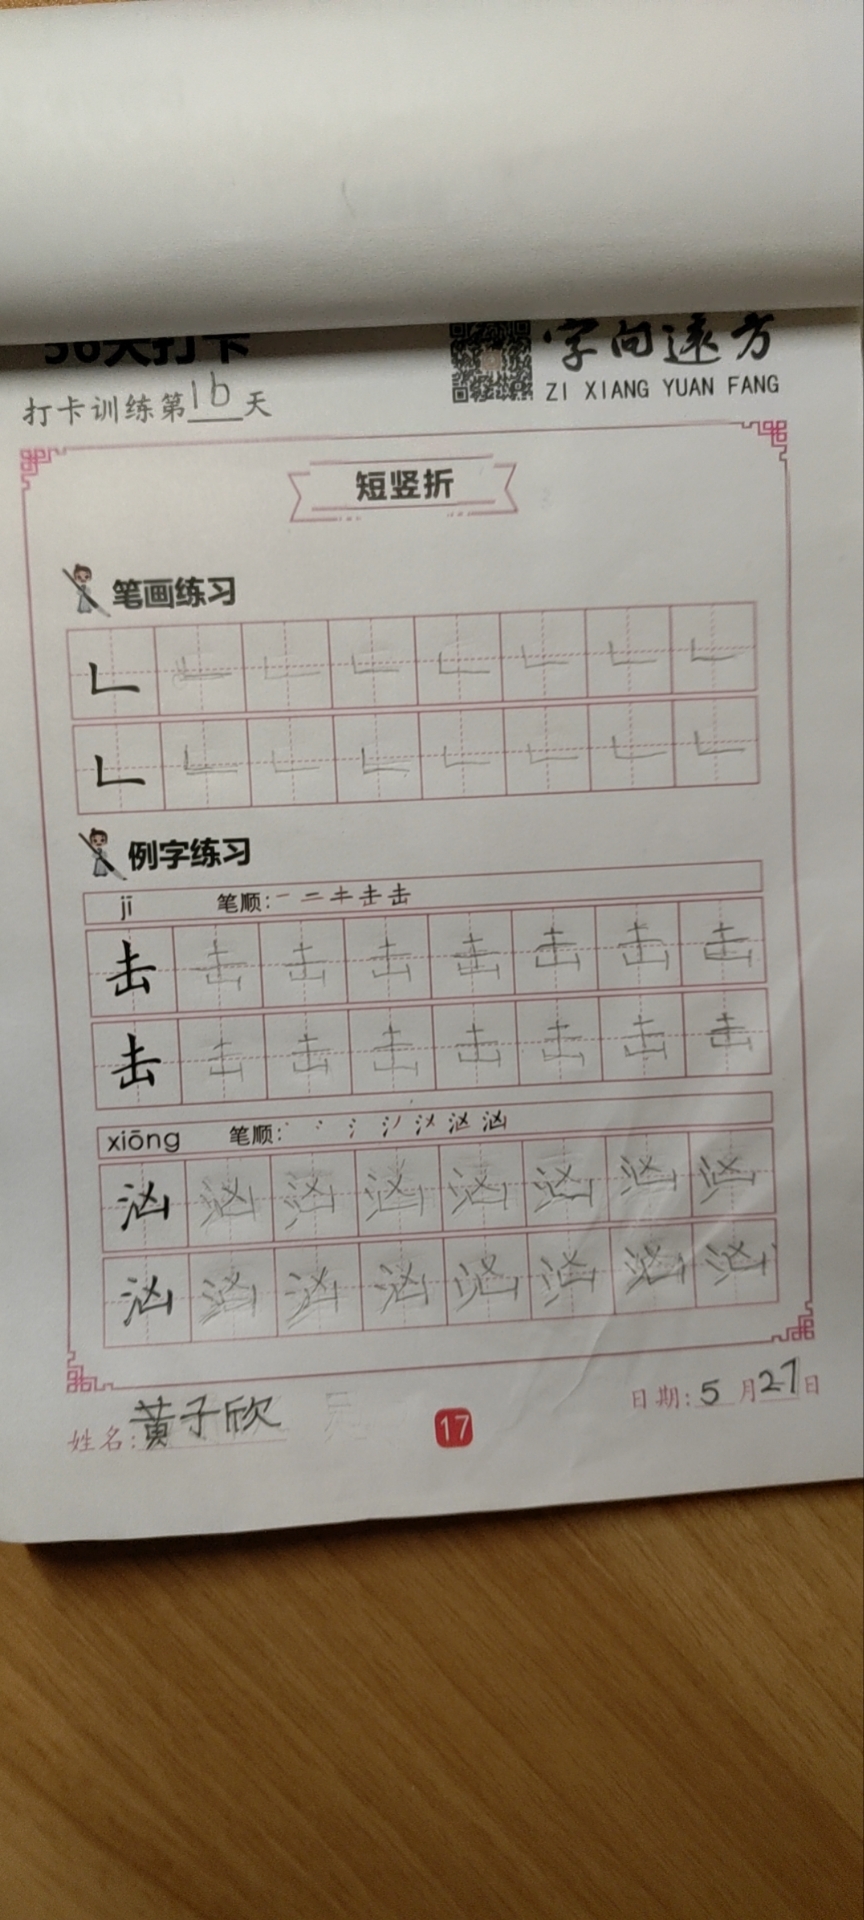 36天打卡
字向远方
ZI XIANG YUAN FANG
打卡训练第16天
短竖折
笔画练习
例字练习
jī 笔顺:一 二 キ 击 击
击 击 击 击 击 击 击 击
击 击 击 击 击 击 击 击
xiōng 笔顺:
汹 汹 汹 汹 汹 汹 汹 汹
汹 汹 汹 汹 汹 汹 汹 汹
姓名:黄子欣
17
日期:5月27日